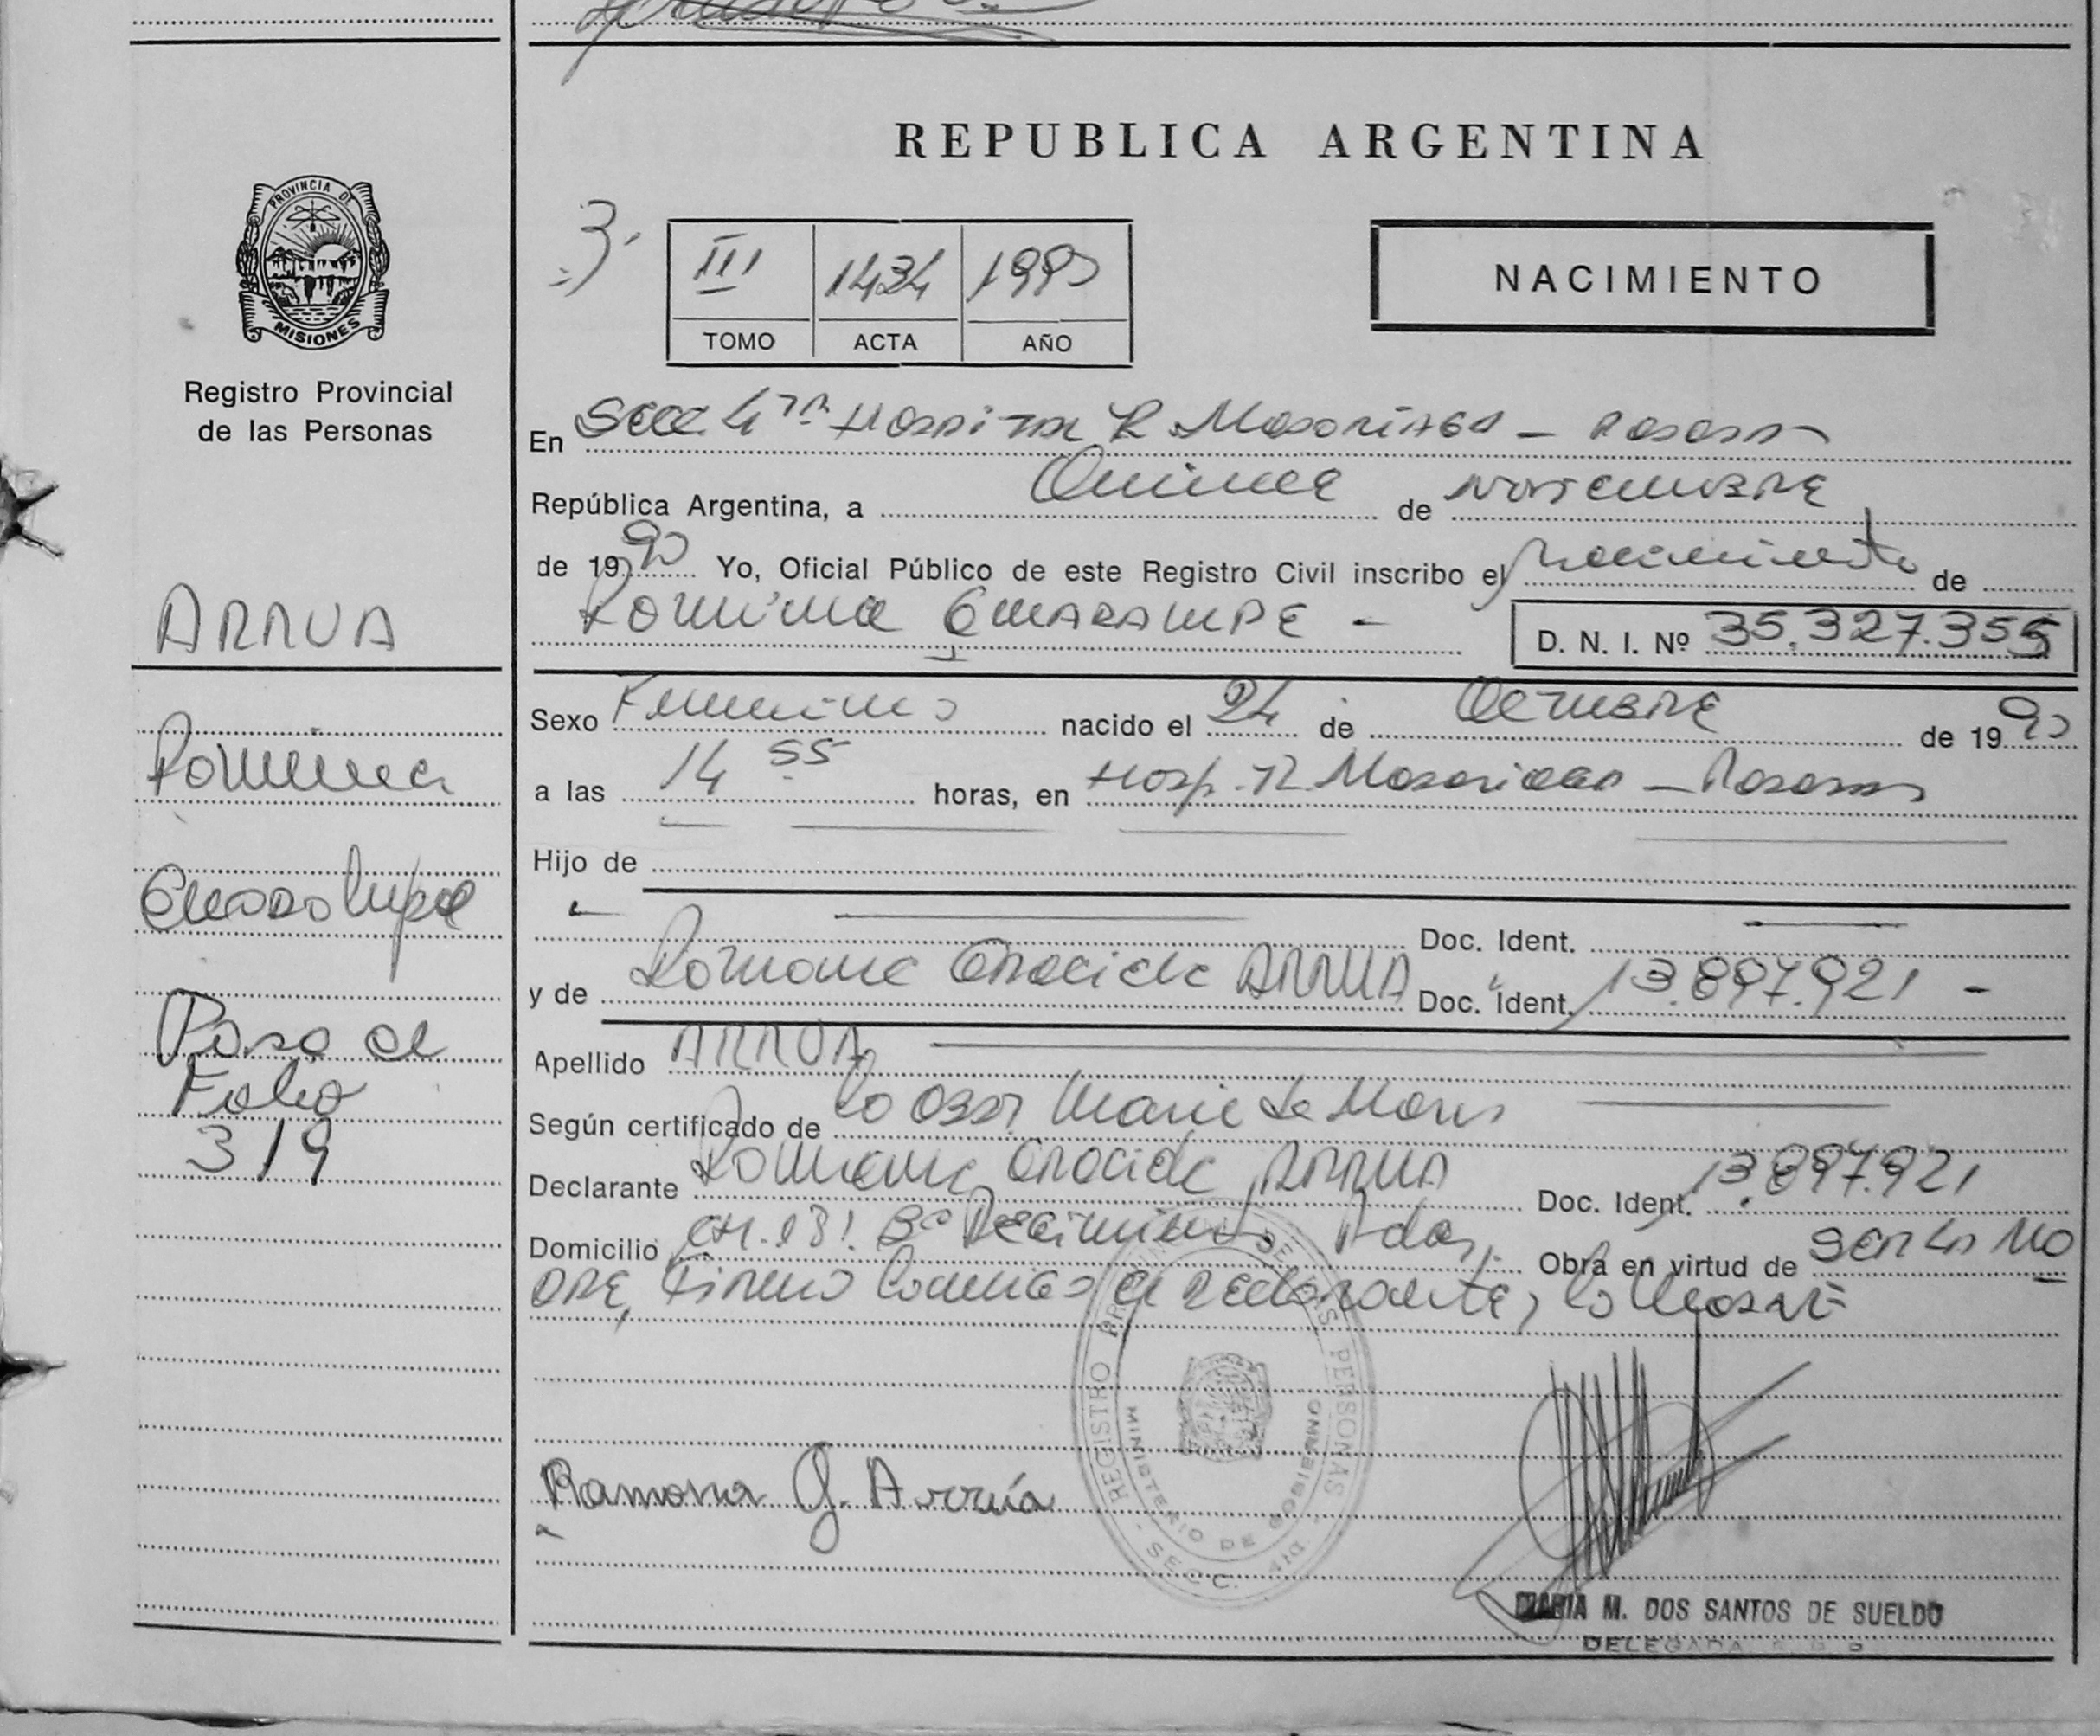 REPUBLICA ARGENTINA
PROVINCIA DE
MISIONES
Registro Provincial
de las Personas
III 1434 1990
TOMO ACTA AÑO
NACIMIENTO
En Secc. 4ta Hospital R. Madariaga - Posadas
República Argentina, a Quince de Noviembre
de 1990 Yo, Oficial Público de este Registro Civil inscribo el Nacimiento de
Romina Guadalupe - D. N. I. Nº 35.327.355
ARRUA
Romina
Guadalupe
Pasa al
Folio
319
Sexo Femenino nacido el 24 de Octubre de 1990
a las 14 55 horas, en Hosp. R. Madariaga - Posadas
Hijo de
Doc. Ident.
y de Ramona Graciela ARRUA Doc. Ident. 13.897.921 -
Apellido ARRUA
Según certificado de la Obst Maria de
Declarante Ramona Graciela ARRUA Doc. Ident. 13.897.921
Domicilio Pdas. Obra en virtud de ser la Ma
dre, Firma Conmigo el declarante,
Ramona G. Arrúa
REGISTRO PROVINCIAL DE LAS PERSONAS
MINISTERIO DE GOBIERNO
SECC. 4ta
MARIA M. DOS SANTOS DE SUELDO
DELEGADA